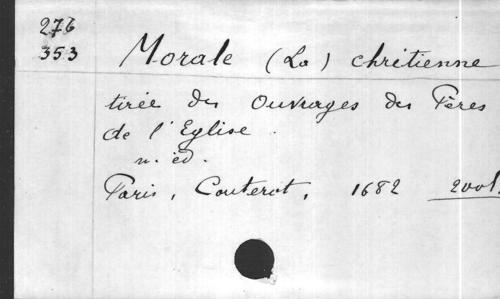 276
353
Morale (La) chrétienne
tirée des Ouvrages des Pères
de l'Eglise.
n. éd.
Paris, Couterot, 1682 2 vol.